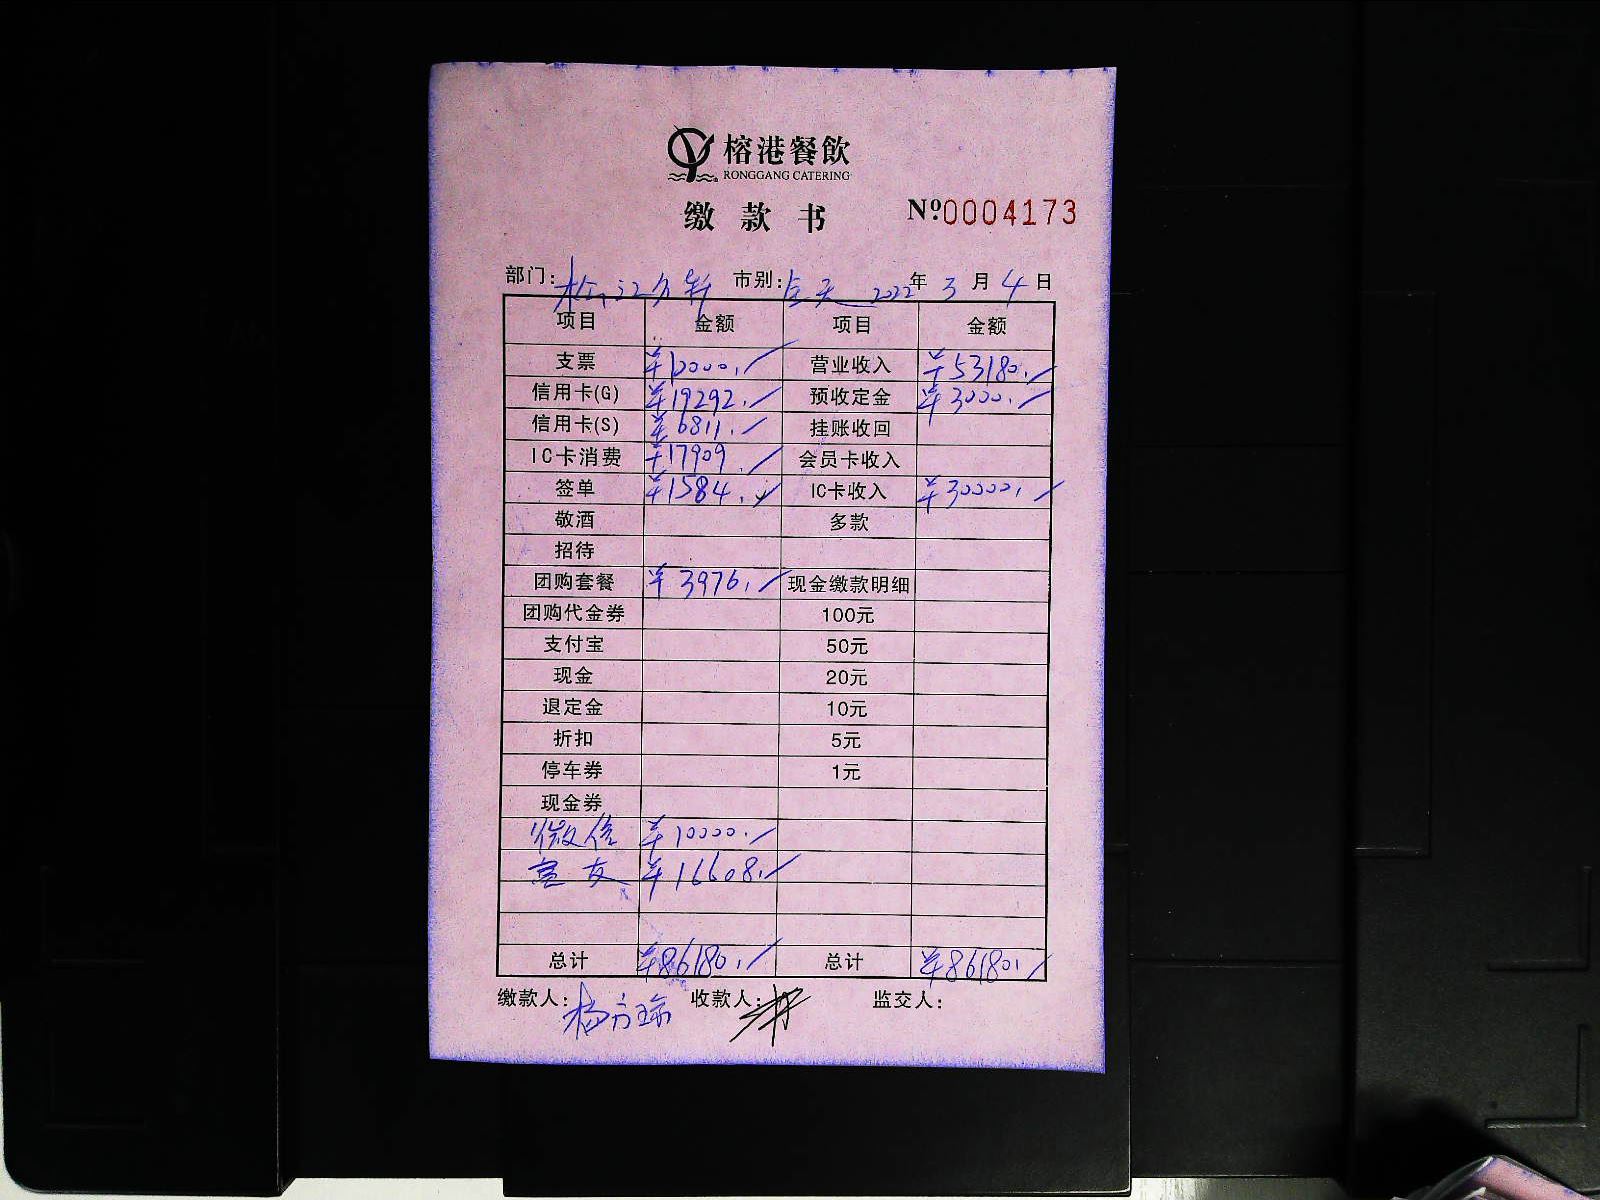 榕港餐飲
RONGGANG CATERING
缴款书 Nº0004173
部门: 市别:全天 2022年3月4日
项目 金额 项目 金额
支票 ¥10000. 营业收入 ¥53180.
信用卡(G) ¥19292. 预收定金 ¥3000.
信用卡(S) ¥6811. 挂账收回
IC卡消费 ¥17909. 会员卡收入
签单 ¥1584. IC卡收入 ¥30000.
敬酒 多款
招待
团购套餐 ¥3976. 现金缴款明细
团购代金券 100元
支付宝 50元
现金 20元
退定金 10元
折扣 5元
停车券 1元
现金券
微信 ¥10000.
¥16608.
总计 ¥86180. 总计 ¥86180.
缴款人: 收款人: 监交人: